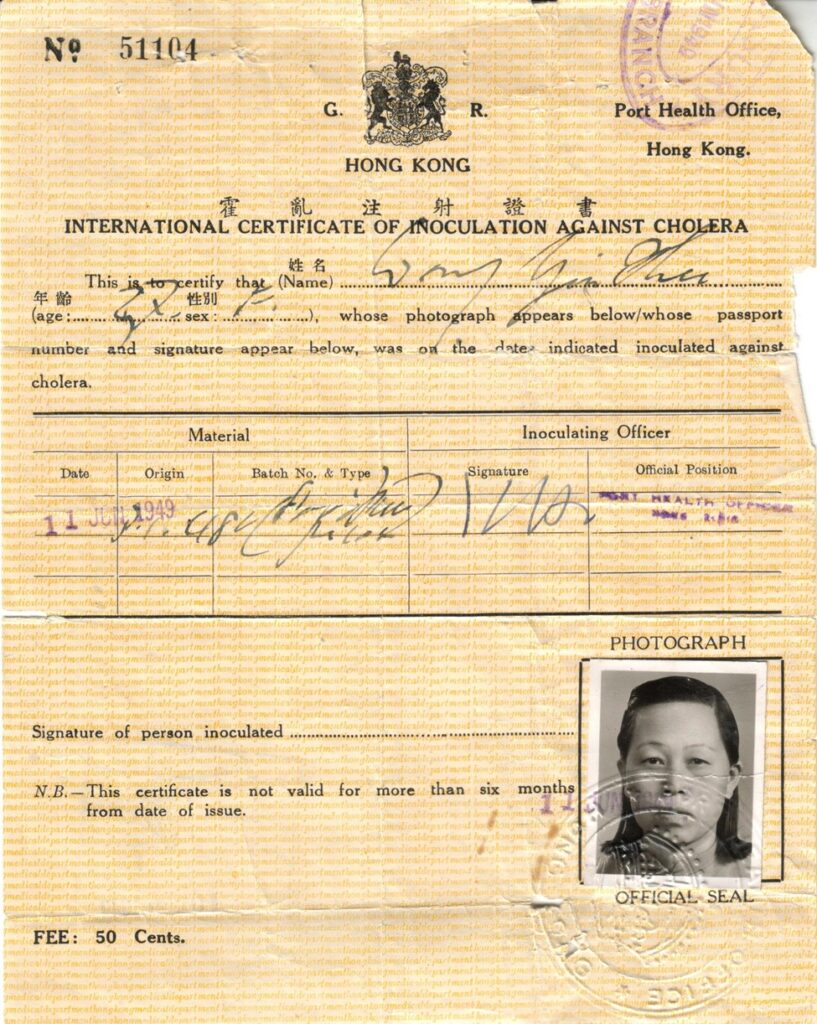 No 51104
BRANCH
G. R.
Port Health Office,
Hong Kong.
HONG KONG
霍亂注射證書
INTERNATIONAL CERTIFICATE OF INOCULATION AGAINST CHOLERA
姓名
This is to certify that (Name) Wong Yin
年齡 性別
(age: sex: F. ), whose photograph appears below/whose passport
number and signature appear below, was on the date indicated inoculated against
cholera.
Material Inoculating Officer
Date Origin Batch No. & Type Signature Official Position
11 JUN 1949 PORT HEALTH OFFICER
HONG KONG
PHOTOGRAPH
Signature of person inoculated
N.B.—This certificate is not valid for more than six months
from date of issue.
11 JUN
OFFICIAL SEAL
FEE: 50 Cents.
OFFICE